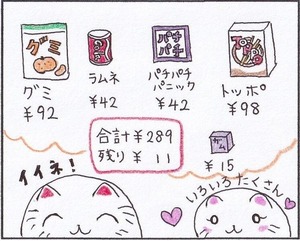 グミ
グミ
¥92
ラムネ
¥42
パチ
パチ
パチパチ
パニック
¥42
トッポ
¥98
合計¥289
残り¥ 11
ガム
¥15
イイネ!
いろいろたくさん